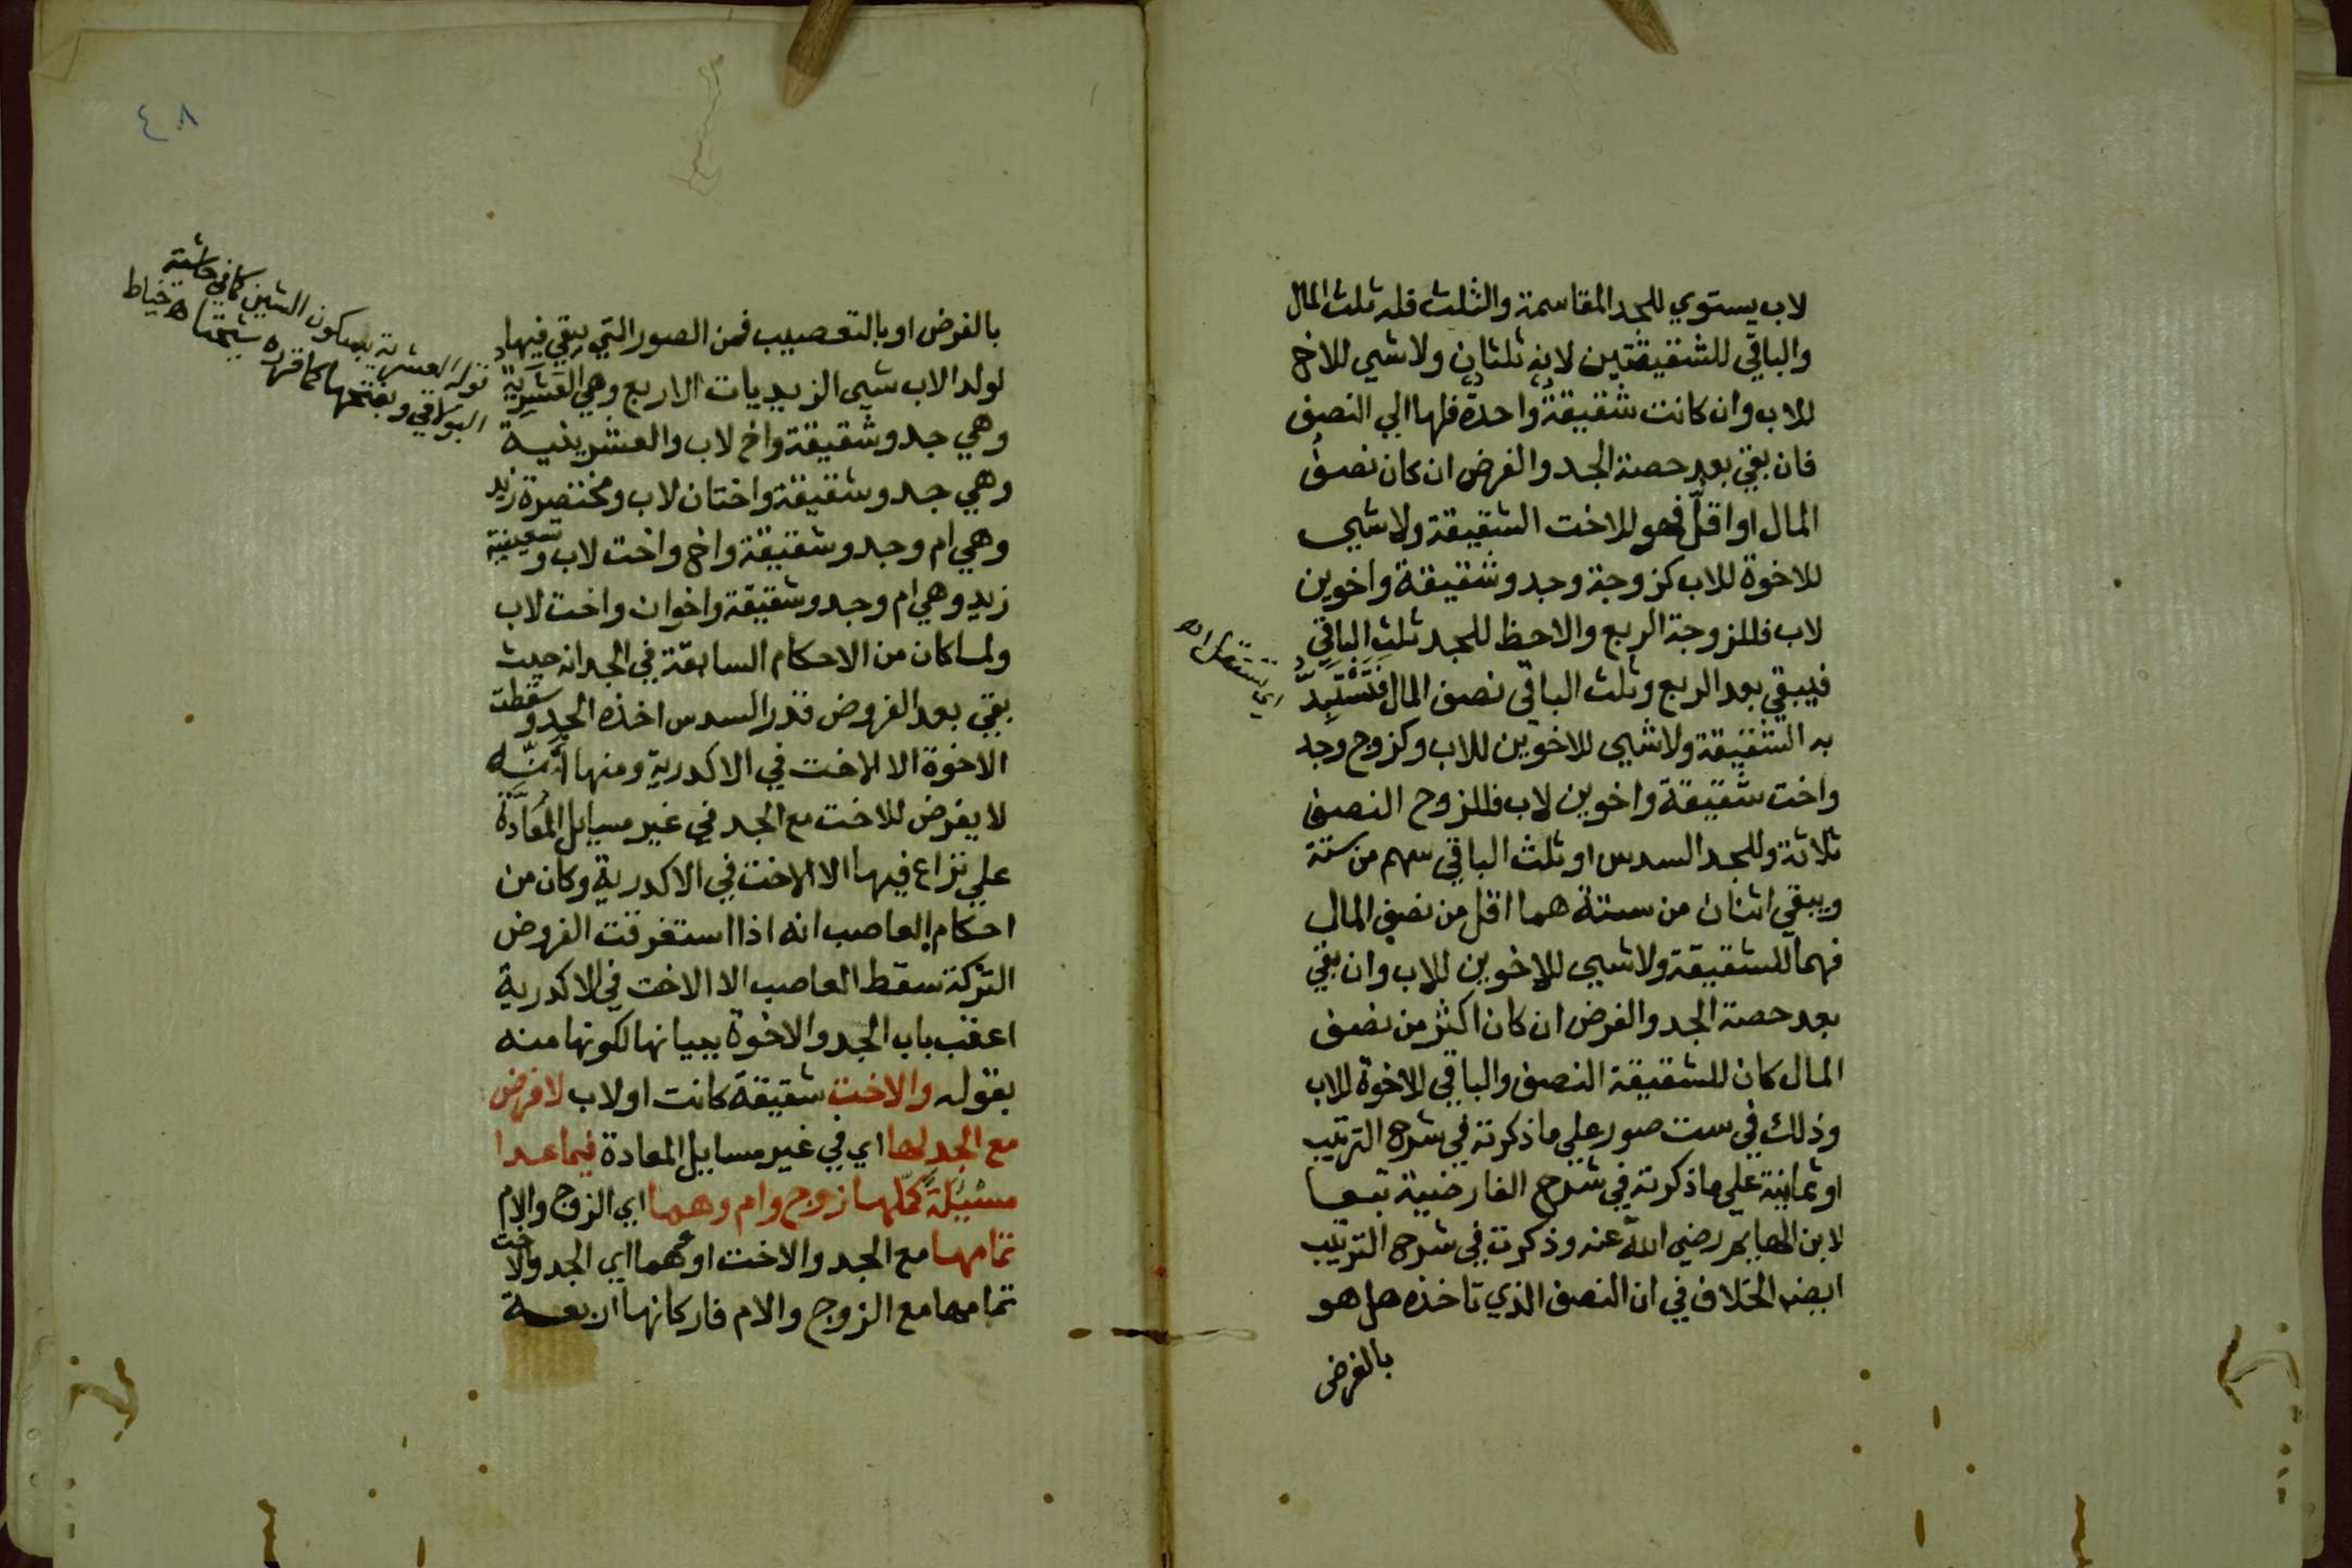 لاب يستوي للجد المقاسمة والثلث فله ثلث المال
والباقي للشقيقتين لانه ثلثان ولا شي للاخ
للاب وان كانت شقيقةٌ واحدةٌ فلها الي النصف
فان بقي بعد حصة الجد والفرض ان كان نصفُ
المال او اقلّ فهو للاخت الشقيقة ولا شي
للاخوة للاب كزوجة وجد وشقيقة واخوين
لاب فللزوجة الربع والاحظ للجد ثلث الباقي
فيبقي بعد الربع وثلث الباقي نصف المال فَتَسْتَبِدُّ
اي تستقل اه
به الشقيقة ولا شي للاخوين للاب وكزوج وجد
واخت شقيقة واخوين لاب فللزوج النصف
ثلاثة وللجد السدس او ثلث الباقي سهم من ستة
ويبقي اثنان من ستة هما اقل من نصف المال
فهما للشقيقة ولا شي للاخوين للاب وان بقي
بعد حصة الجد والفرض ان كان اكثر من نصف
المال كان للشقيقة النصف والباقي للاخوة للاب
وذلك في ست صور علي ما ذكرته في شرح الترتيب
او ثمانية علي ما ذكرته في شرح الفارضية تبعا
لابن الهايم رضي الله عنه وذكرت في شرح الترتيب
ايضا الخلاف في ان النصف الذي تاخذه هل هو
بالفرض
٤٨
بالفرض او بالتعصيب فمن الصور التي يبقي فيها
لولد الاب شي الزيديات الاربع وهي العَشَرِيةُ
قوله العشرية بسكون الشين كما في حاشية
البولاقي وبفتحها كما قرره شيخنا اه خياط
وهي جد وشقيقة واخ لاب والعشرينية
وهي جد وشقيقة واختان لاب ومختصرة زيد
وهي ام وجد وشقيقة واخ واخت لاب وتسعينية
زيد وهي ام وجد وشقيقة واخوان واخت لاب
ولما كان من الاحكام السابقة في الجد انه حيث
بقي بعد الفروض قدر السدس اخذه الجد وسقطت
الاخوة الا الاخت في الاكدرية ومنها أَنَّه
لا يفرض للاخت مع الجد في غير مسايل المُعَادَّة
علي نزاع فيها الا الاخت في الاكدرية وكان من
احكام العاصب انه اذا استغرقت الفروض
التركة سقط العاصب الا الاخت في الاكدرية
اعقب باب الجد والاخوة ببيانها لكونها منه
بقوله والاخت شقيقة كانت او لاب لا فرض
مع الجد لها اي في غير مسايل المعادة فيما عدا
مسئلةً كمّلها زوج وام وهما اي الزوج والام
تمامها مع الجد والاخت او هما اي الجد والاخت
تمامها مع الزوج والام فاركانها اربعة